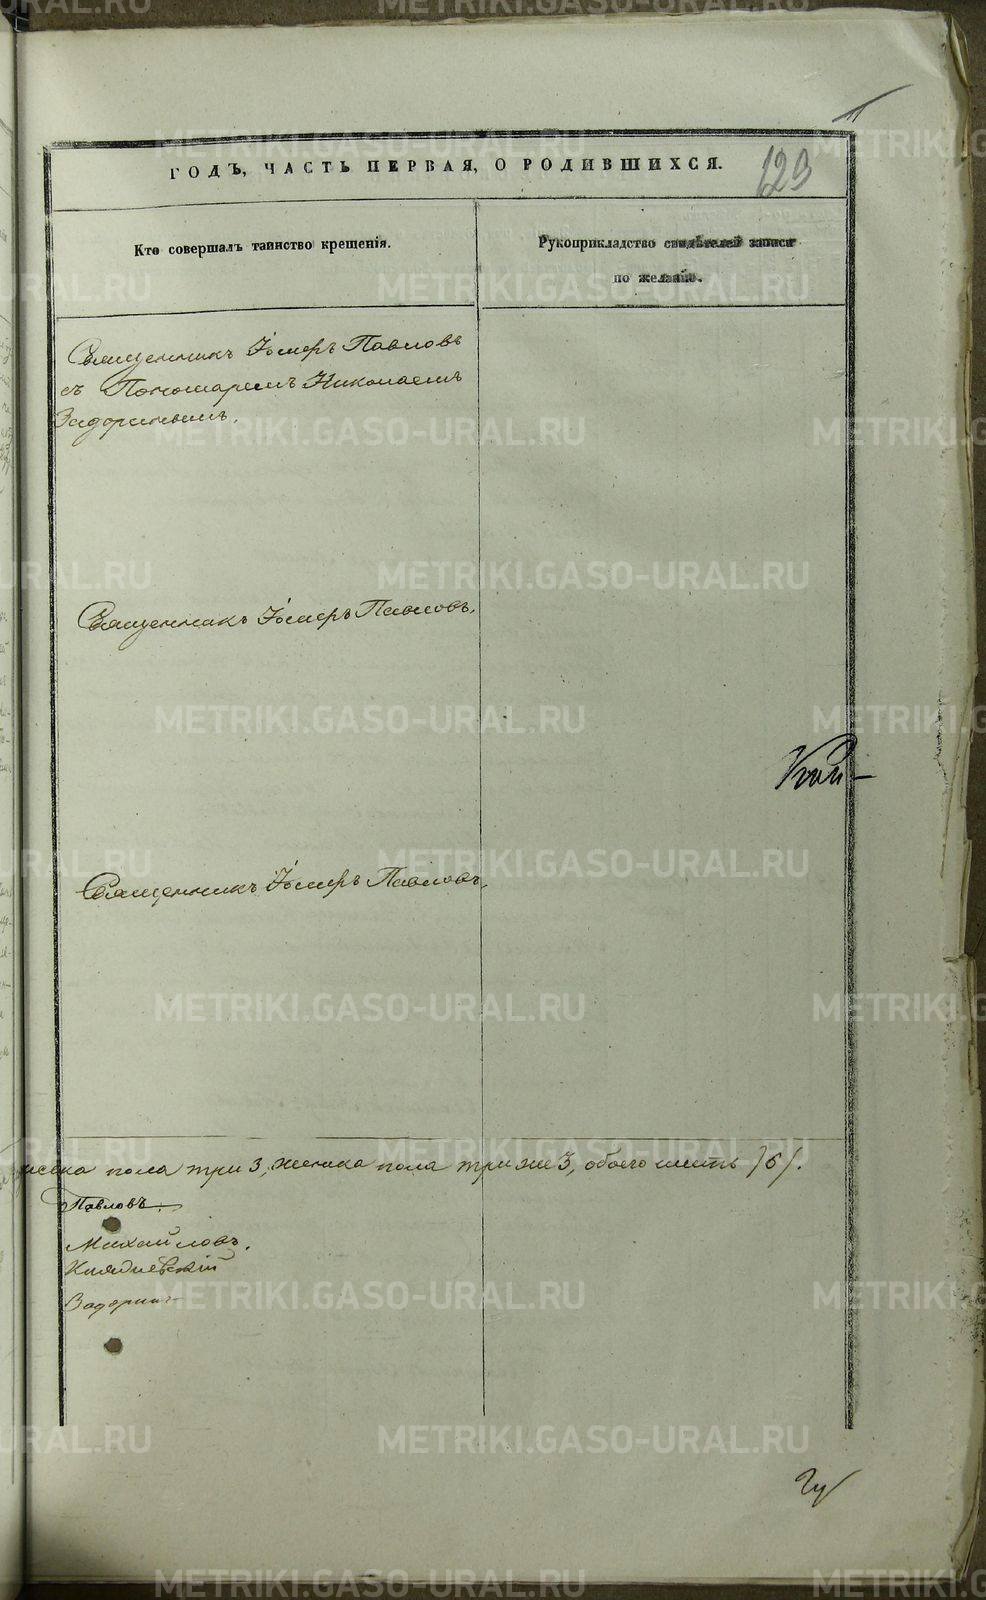 ГОДЪ, ЧАСТЬ ПЕРВАЯ, О РОДИВШИХСЯ.
123
Кто совершалъ таинство крещенія.
Рукоприкладство свидѣтелей записи
по желанію.
Священникъ Іосифъ Павловъ
съ Пономаремъ Николаемъ
Задоринымъ.
Священникъ Іосифъ Павловъ.
Священникъ Іосифъ Павловъ.
пола три 3, женска пола три же 3, обоего шесть /6/.
Павловъ.
Михайловъ.
Задоринъ
METRIKI.GASO-URAL.RU